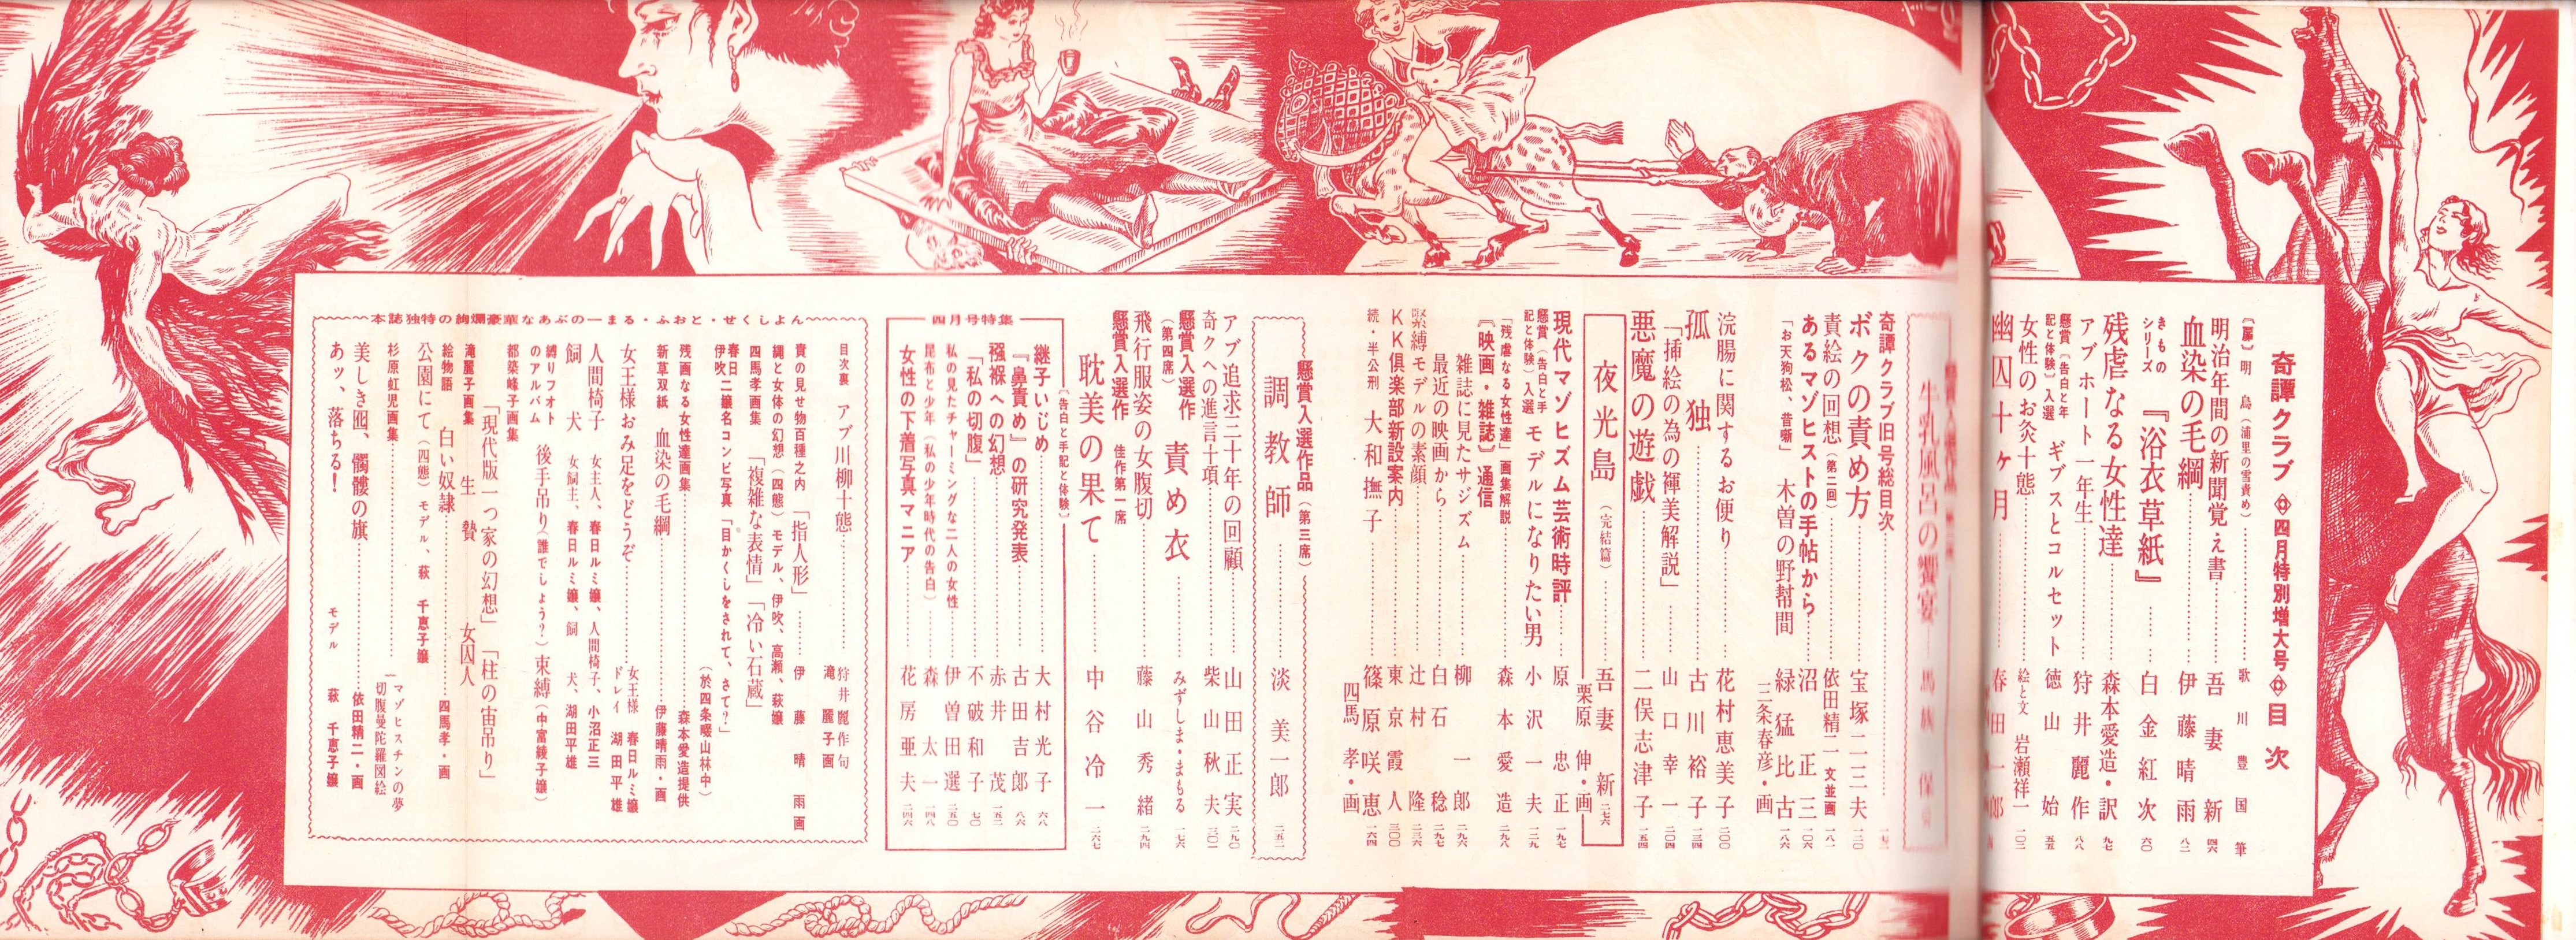 奇譚クラブ ◇四月特別増大号◇ 目次
〔扉〕明烏(浦里の雪責め)……歌川豊国筆
明治年間の新聞覚え書……吾妻新 四六
血染の毛綱……伊藤晴雨 八二
きものシリーズ 『浴衣草紙』……白金紅次 六〇
残虐なる女性達……森本愛造・訳 九七
アブホート一年生……狩井麗作 八八
懸賞〔告白と年記と体験〕入選 ギプスとコルセット 徳山始 五五
女性のお灸十態……絵と文 岩瀬祥一 一〇二
幽囚十ヶ月……春田一郎
牛乳風呂の饗宴 馬族保
奇譚クラブ旧号総目次
ボクの責め方……宝塚二三夫 一二〇
責絵の回想(第二回)……依田精二 文並画 一八一
あるマゾヒストの手帖から……沼正三 一〇六
「お天狗松、昔噺」 木曽の野幇間 緑猛比古 一八六
三条春彦・画
浣腸に関するお便り……花村恵美子 二〇〇
孤独……古川裕子 一三四
「挿絵の為の褌美解説」……山口幸一 二〇四
悪魔の遊戯……二俣志津子 一五四
夜光島(完結篇)……吾妻新 二七六
栗原伸・画
現代マゾヒズム芸術時評……原忠正 一九七
懸賞〔告白と手記と体験〕入選 モデルになりたい男 小沢一夫 一二九
「残虐なる女性達」画集解説……森本愛造 二九八
〔映画・雑誌〕通信
雑誌に見たサジズム……柳一郎 二九六
最近の映画から……白石稔 二九七
緊縛モデルの素顔……辻村隆 二三六
KK倶楽部新設案内……東京霞人 三〇〇
続・半公刑 大和撫子……篠原咲恵 一六四
四馬孝・画
懸賞入選作品(第三席)
調教師……淡美一郎 二五二
アブ追求三十年の回顧……山田正実 二九〇
奇クへの進言十項……柴山秋夫 三〇二
懸賞入選作(第四席) 責め衣……みずしま・まもる 一七六
飛行服姿の女腹切……藤山秀緒 二九四
懸賞入選作 佳作第一席
耽美の果て……中谷冷一 二六七
四月号特集
〔告白と手記と体験〕
継子いじめ……大村光子 六八
『鼻責め』の研究発表……古田吉郎 八六
襁褓への幻想……赤井茂 一五二
「私の切腹」……不破和子 七〇
私の見たチャーミングな二人の女性……伊曽田選 二五〇
昆布と少年(私の少年時代の告白)……森太一 一四八
女性の下着写真マニア……花房亜夫 二四六
本誌独特の絢爛豪華なあぶのーまる・ふおと・せくしよん
目次裏 アブ川柳十態……狩井麗作句
滝麗子画
責の見せ物百種之内 「指人形」……伊藤晴雨画
縄と女体の幻想(四態)モデル、伊吹、高瀬、萩嬢
四馬孝画集 「複雑な表情」「冷い石蔵」
春日 伊吹 二嬢名コンビ写真「目かくしをされて、さて?」
(於四条畷山林中)
残酷なる女性達画集……森本愛造提供
新草双紙 血染の毛綱……伊藤晴雨・画
女王様おみ足をどうぞ……女王様 春日ルミ嬢
ドレイ 湖田平雄
人間椅子 女主人、春日ルミ嬢、人間椅子、小沼正三
飼犬 女飼主、春日ルミ嬢、飼犬、湖田平雄
縛りフオトのアルバム 後手吊り(誰でしょう?)束縛(中富綾子嬢)
都築峰子画集 「現代版一つ家の幻想」「柱の宙吊り」
滝麗子画集 生贄 女囚人
絵物語 白い奴隷……四馬孝・画
公園にて(四態)モデル、萩千恵子嬢
杉原虹児画集……マゾヒスチンの夢
切腹曼陀羅図絵
美しき囮、髑髏の旗……依田精二・画
あッ、落ちる! モデル 萩千恵子嬢